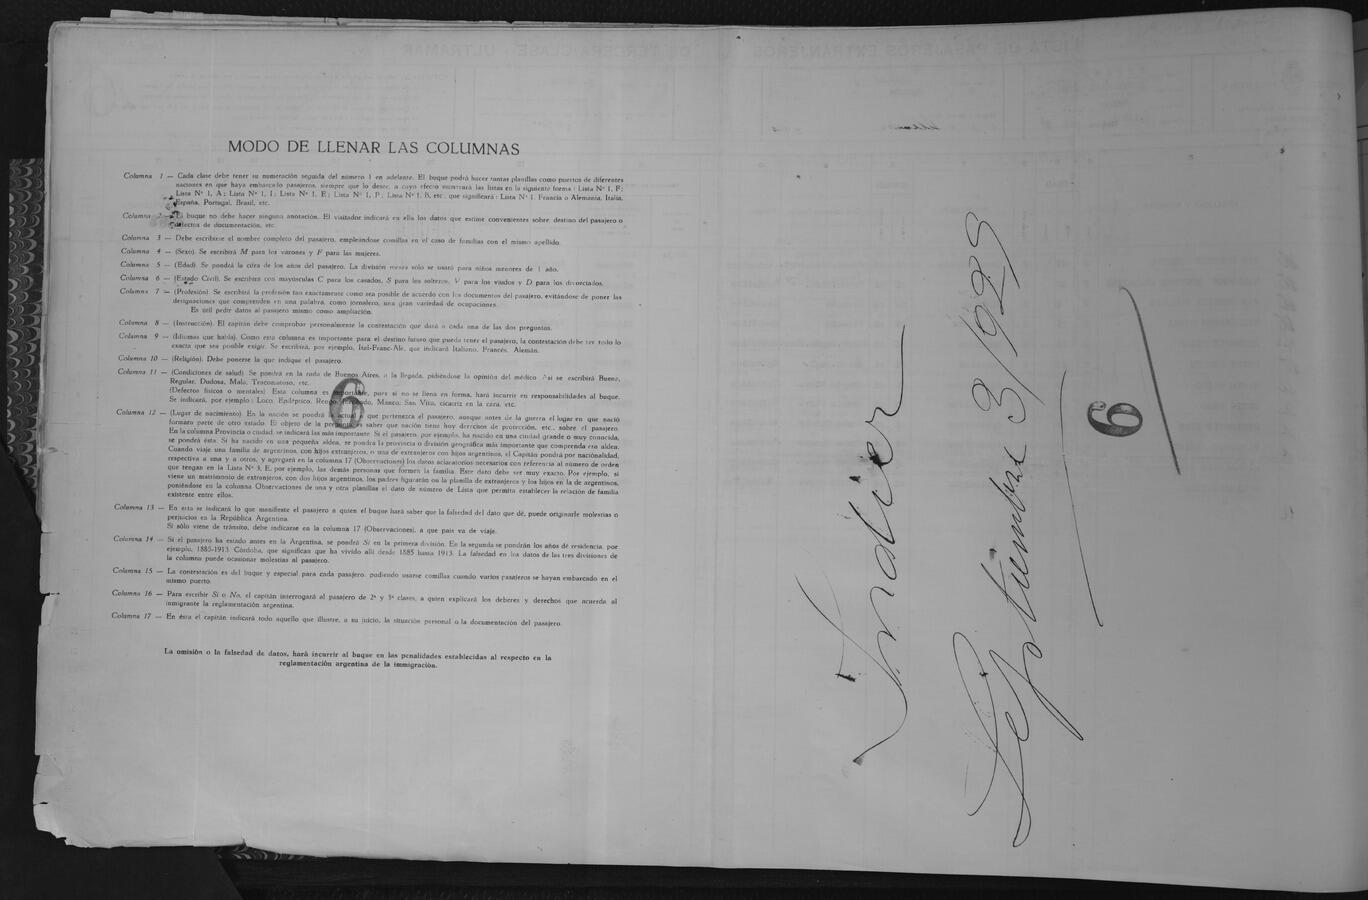 MODO DE LLENAR LAS COLUMNAS
Columna 1 — Cada clase debe tener su numeración seguida del número 1 en adelante. El buque podrá hacer tantas planillas como puertos de diferentes
naciones en que haya embarcado pasajeros, siempre que lo desee, a cuyo efecto numerará las listas en la siguiente forma: Lista Nº 1, F;
Lista Nº 1, A; Lista Nº 1, I; Lista Nº 1, E; Lista Nº 1, P; Lista Nº 1, B, etc., que significará: Lista Nº 1. Francia o Alemania, Italia,
España, Portugal, Brasil, etc.
Columna 2 — El buque no debe hacer ninguna anotación. El visitador indicará en ella los datos que estime convenientes sobre destino del pasajero o
defectos de documentación, etc.
Columna 3 — Debe escribirse el nombre completo del pasajero, empleándose comillas en el caso de familias con el mismo apellido.
Columna 4 — (Sexo). Se escribirá M para los varones y F para las mujeres.
Columna 5 — (Edad). Se pondrá la cifra de los años del pasajero. La división meses sólo se usará para niños menores de 1 año.
Columna 6 — (Estado Civil). Se escribirá con mayúsculas C para los casados, S para los solteros, V para los viudos y D para los divorciados.
Columna 7 — (Profesión). Se escribirá la profesión tan exactamente como sea posible de acuerdo con los documentos del pasajero, evitándose de poner las
designaciones que comprenden en una palabra, como jornalero, una gran variedad de ocupaciones.
Es útil pedir datos al pasajero mismo como ampliación.
Columna 8 — (Instrucción). El capitán debe comprobar personalmente la contestación que dará a cada una de las dos preguntas.
Columna 9 — (Idiomas que habla). Como esta columna es importante para el destino futuro que pueda tener el pasajero, la contestación debe ser todo lo
exacta que sea posible exigir. Se escribirá, por ejemplo, Ital-Franc-Ale, que indicará Italiano, Francés, Alemán.
Columna 10 — (Religión). Debe ponerse la que indique el pasajero.
Columna 11 — (Condiciones de salud) Se pondrá en la rada de Buenos Aires, a la llegada, pidiéndose la opinión del médico. Así se escribirá Buena,
Regular, Dudosa, Mala, Tracomatoso, etc.
(Defectos físicos o mentales) Esta columna es importante, pues si no se llena en forma, hará incurrir en responsabilidades al buque.
Se indicará, por ejemplo: Loco, Epiléptico, Rengo, Manco, San Vito, cicatriz en la cara, etc.
Columna 12 — (Lugar de nacimiento). En la nación se pondrá la actual a que pertenezca el pasajero, aunque antes de la guerra el lugar en que nació
formara parte de otro estado. El objeto de la pregunta es saber que nación tiene hoy derechos de protección, etc., sobre el pasajero.
En la columna Provincia o ciudad, se indicará las más importante. Si el pasajero, por ejemplo, ha nacido en una ciudad grande o muy conocida,
se pondrá ésta. Si ha nacido en una pequeña aldea, se pondrá la provincia o división geográfica más importante que comprenda esa aldea.
Cuando viaje una familia de argentinos, con hijos extranjeros, o una de extranjeros con hijos argentinos, el Capitán pondrá por nacionalidad,
respectiva a una y a otros, y agregará en la columna 17 (Observaciones) los datos aclaratorios necesarios con referencia al número de orden
que tengan en la Lista Nº 3, E, por ejemplo, las demás personas que formen la familia. Este dato debe ser muy exacto. Por ejemplo, si
viene un matrimonio de extranjeros, con dos hijos argentinos, los padres figurarán en la planilla de extranjeros y los hijos en la de argentinos,
poniéndose en la columna Observaciones de una y otra planillas el dato de número de Lista que permita establecer la relación de familia
existente entre ellos.
Columna 13 — En esta se indicará lo que manifieste el pasajero a quien el buque hará saber que la falsedad del dato que dé, puede originarle molestias o
perjuicios en la República Argentina.
Si sólo viene de tránsito, debe indicarse en la columna 17 (Observaciones), a que país va de viaje.
Columna 14 — Si el pasajero ha estado antes en la Argentina, se pondrá Sí en la primera división. En la segunda se pondrán los años de residencia, por
ejemplo, 1885-1913 Córdoba, que significan que ha vivido allí desde 1885 hasta 1913. La falsedad en los datos de las tres divisiones de
la columna puede ocasionar molestias al pasajero.
Columna 15 — La contestación es del buque y especial para cada pasajero, pudiendo usarse comillas cuando varios pasajeros se hayan embarcado en el
mismo puerto.
Columna 16 — Para escribir Sí o No, el capitán interrogará al pasajero de 2ª y 3ª clases, a quien explicará los deberes y derechos que acuerda al
inmigrante la reglamentación argentina.
Columna 17 — En ésta el capitán indicará todo aquello que ilustre, a su juicio, la situación personal o la documentación del pasajero.
La omisión o la falsedad de datos, hará incurrir al buque en las penalidades establecidas al respecto en la
reglamentación argentina de la inmigración.
6
Indier
Septiembre 3/1929
6